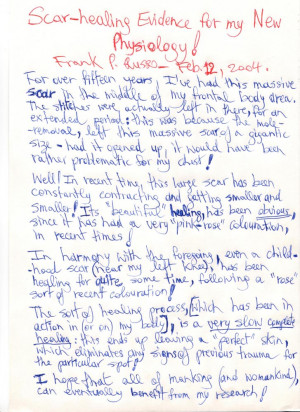 Scar-healing Evidence for my New
Physiology!
Frank P. Russo - Feb. 12, 2004.
For over fifteen years, I've had this massive
scar in the middle of my frontal body area.
The stitches were actually left in there, for an
extended period: this was because the mole-
removal, left this massive scar of a gigantic
size - had it opened up, it would have been
rather problematic for my chest!
Well! In recent time, this large scar has been
constantly contracting and getting smaller and
smaller! Its beautiful "healing, has been obvious,
since it has had a very "pink-rose" colouration,
in recent times!
In harmony with the foregoing, even a child-
hood scar (near my left knee), has been
healing for quite some time, following a "rose"
sort of recent colouration!
The sort of healing process, (which has been in
action in (or on) my body), is a very slow complete
healing: this ends up leaving a "perfect" skin,
which eliminates any signs of previous trauma for
the particular spot!
I hope that all of mankind (and womankind),
can eventually benefit from my research!